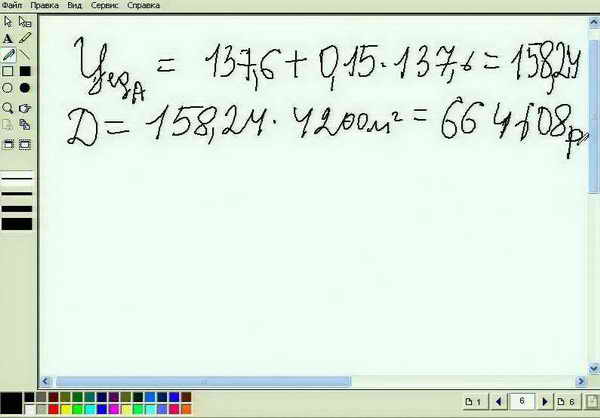 Файл Правка Вид Сервис Справка
Цед А = 137,6 + 0,15 · 137,6 = 158,24
Д = 158,24 · 4200м² = 664608р
A
1
6
6